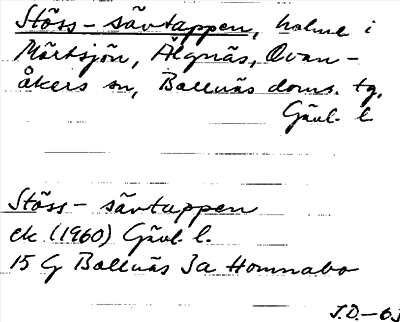 Stöss-sävtappen, holme i
Mörtsjön, Älgnäs, Ovan-
åkers sn, Bollnäs doms. tg,
Gävl. l.
Stöss-sävtappen
ek (1960) Gävl. l.
15 G Bollnäs 3a Homnabo
J.D.-63